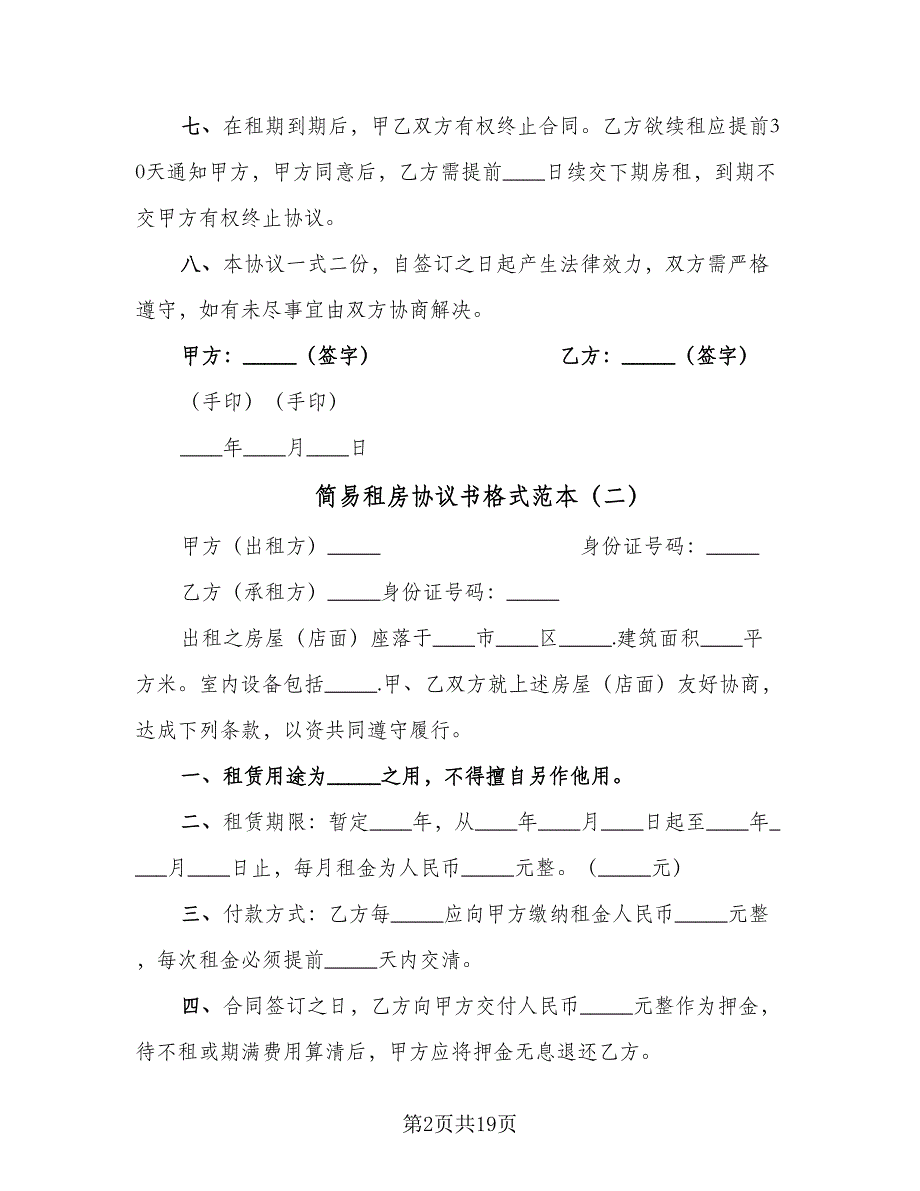 七、在租期到期后，甲乙双方有权终止合同。乙方欲续租应提前3
0天通知甲方，甲方同意后，乙方需提前____日续交下期房租，到期不
交甲方有权终止协议。
八、本协议一式二份，自签订之日起产生法律效力，双方需严格
遵守，如有未尽事宜由双方协商解决。
甲方：_____（签字） 乙方：_____（签字）
（手印）（手印）
____年____月____日
简易租房协议书格式范本（二）
甲方（出租方）_____ 身份证号码：_____
乙方（承租方）_____身份证号码：_____
出租之房屋（店面）座落于____市____区_____.建筑面积____平
方米。室内设备包括_____.甲、乙双方就上述房屋（店面）友好协商，
达成下列条款，以资共同遵守履行。
一、租赁用途为_____之用，不得擅自另作他用。
二、租赁期限：暂定____年，从____年____月____日起至____年_
___月____日止，每月租金为人民币_____元整。（_____元）
三、付款方式：乙方每_____应向甲方缴纳租金人民币_____元整
，每次租金必须提前_____天内交清。
四、合同签订之日，乙方向甲方交付人民币_____元整作为押金，
待不租或期满费用算清后，甲方应将押金无息退还乙方。
第2页共19页